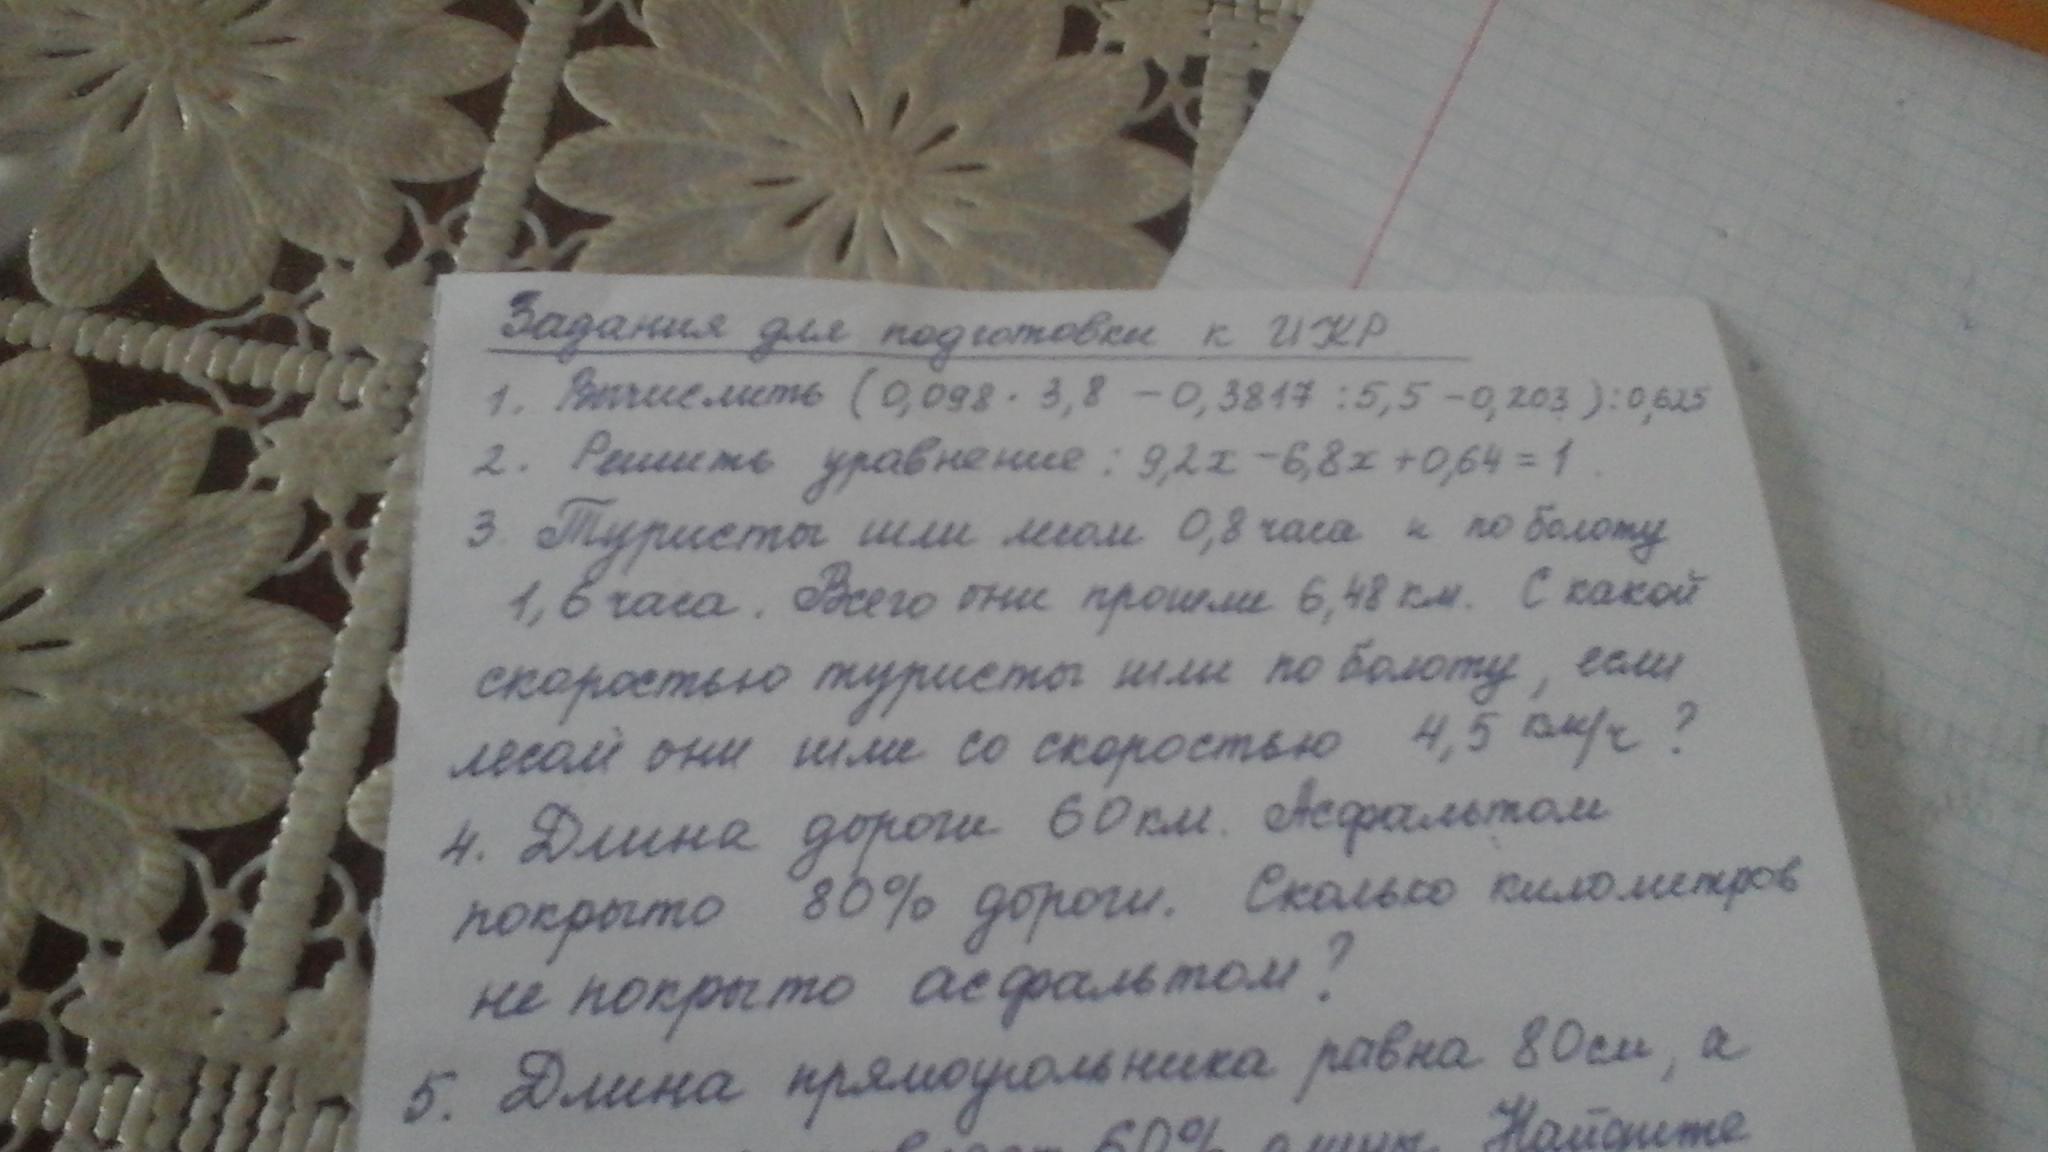 Задания для подготовки к ИКР
1. Вычислить (0,098 · 3,8 - 0,3817 : 5,5 - 0,203) : 0,625
2. Решить уравнение : 9,2х - 6,8х + 0,64 = 1.
3. Туристы шли лесом 0,8 часа и по болоту
1,6 часа. Всего они прошли 6,48 км. С какой
скоростью туристы шли по болоту, если
лесом они шли со скоростью 4,5 км/ч ?
4. Длина дороги 60 км. Асфальтом
покрыто 80% дороги. Сколько километров
не покрыто асфальтом?
5. Длина прямоугольника равна 80 см, а
60% длины. Найдите